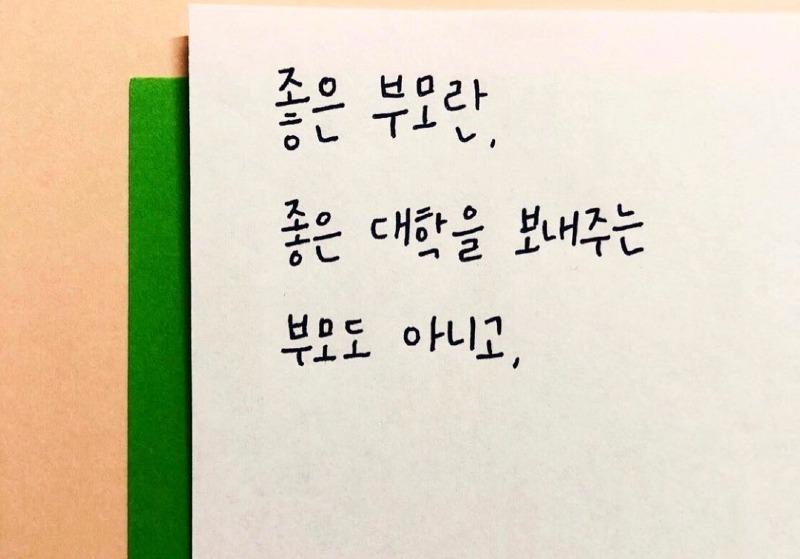 좋은 부모란,
좋은 대학을 보내주는
부모도 아니고,